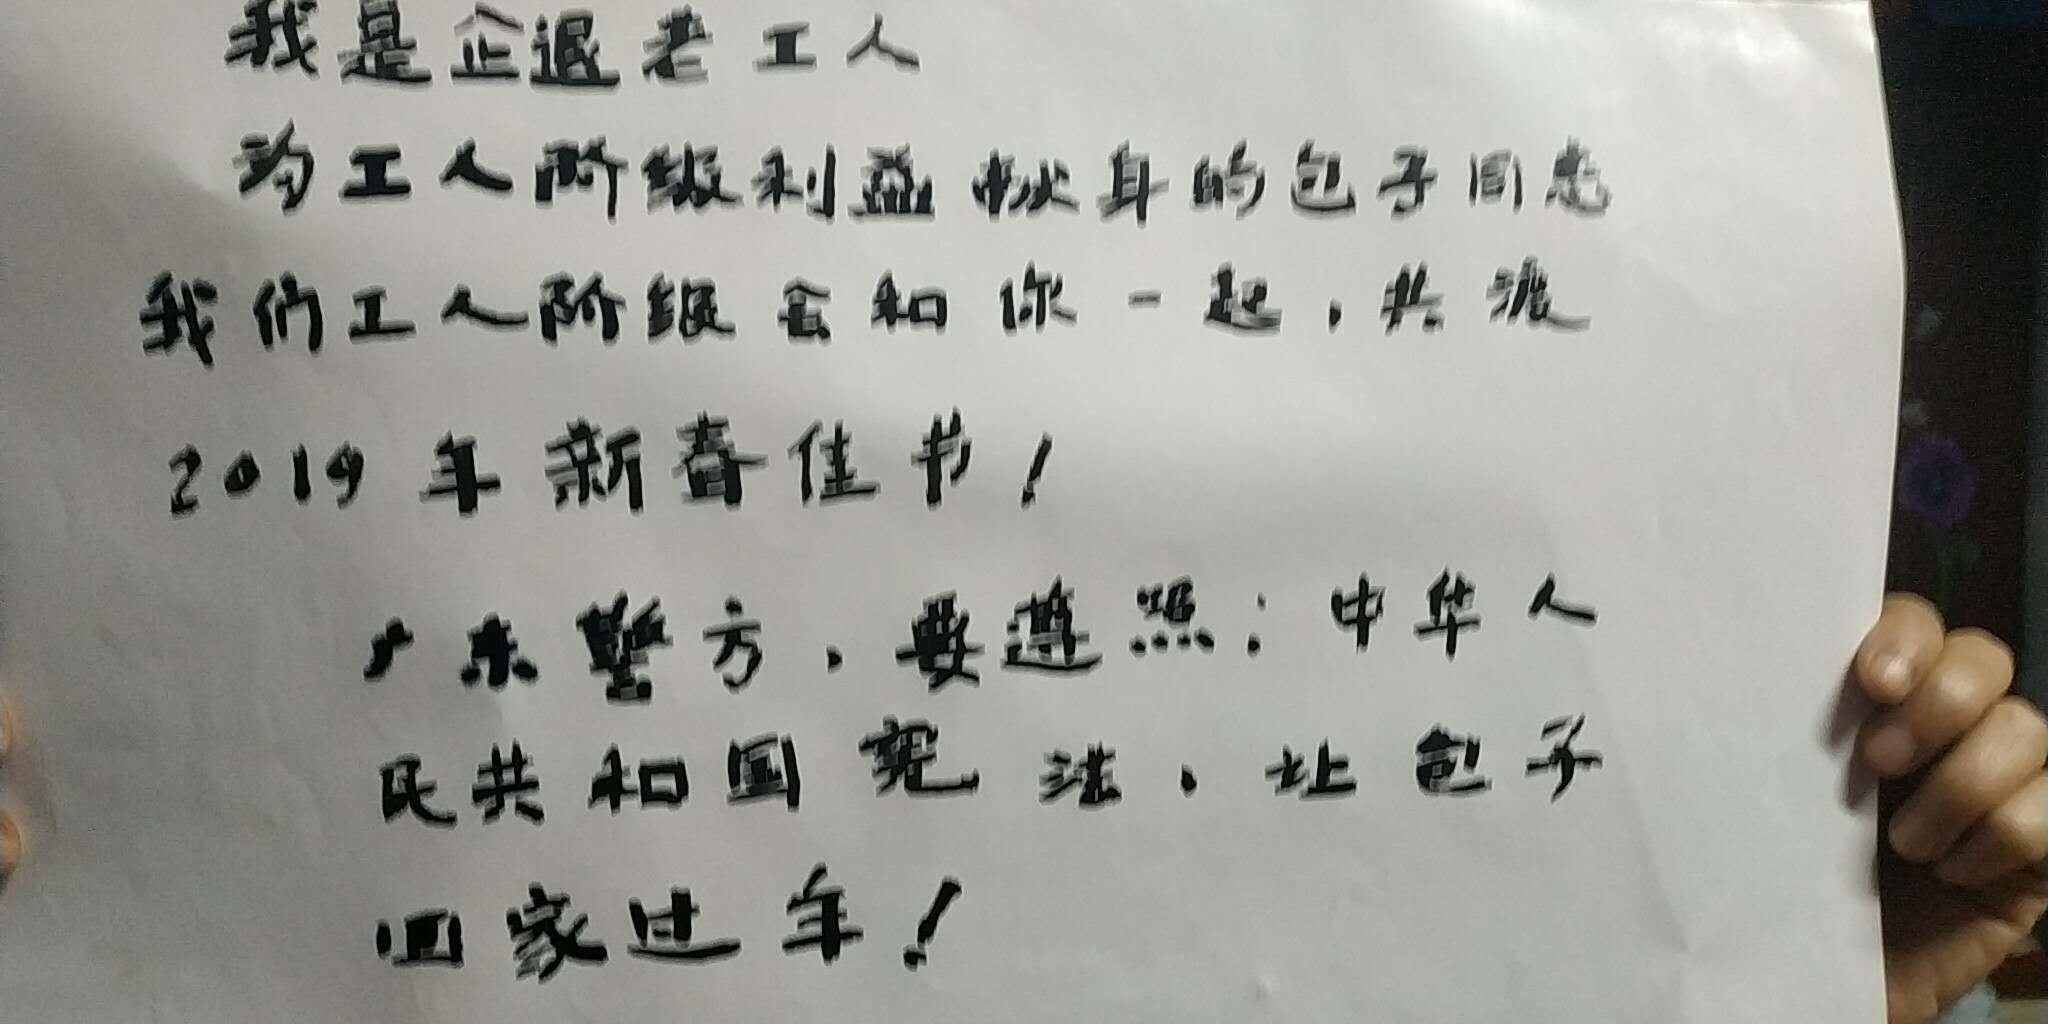 我是企退老工人
为工人阶级利益献身的包子同志
我们工人阶级会和你一起，共渡
2019年新春佳节！
广东警方，要遵照：中华人
民共和国宪法，让包子
回家过年！